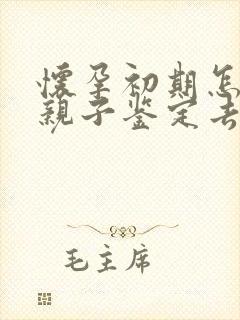 懷孕初期怎
親子鉴定去
毛主席